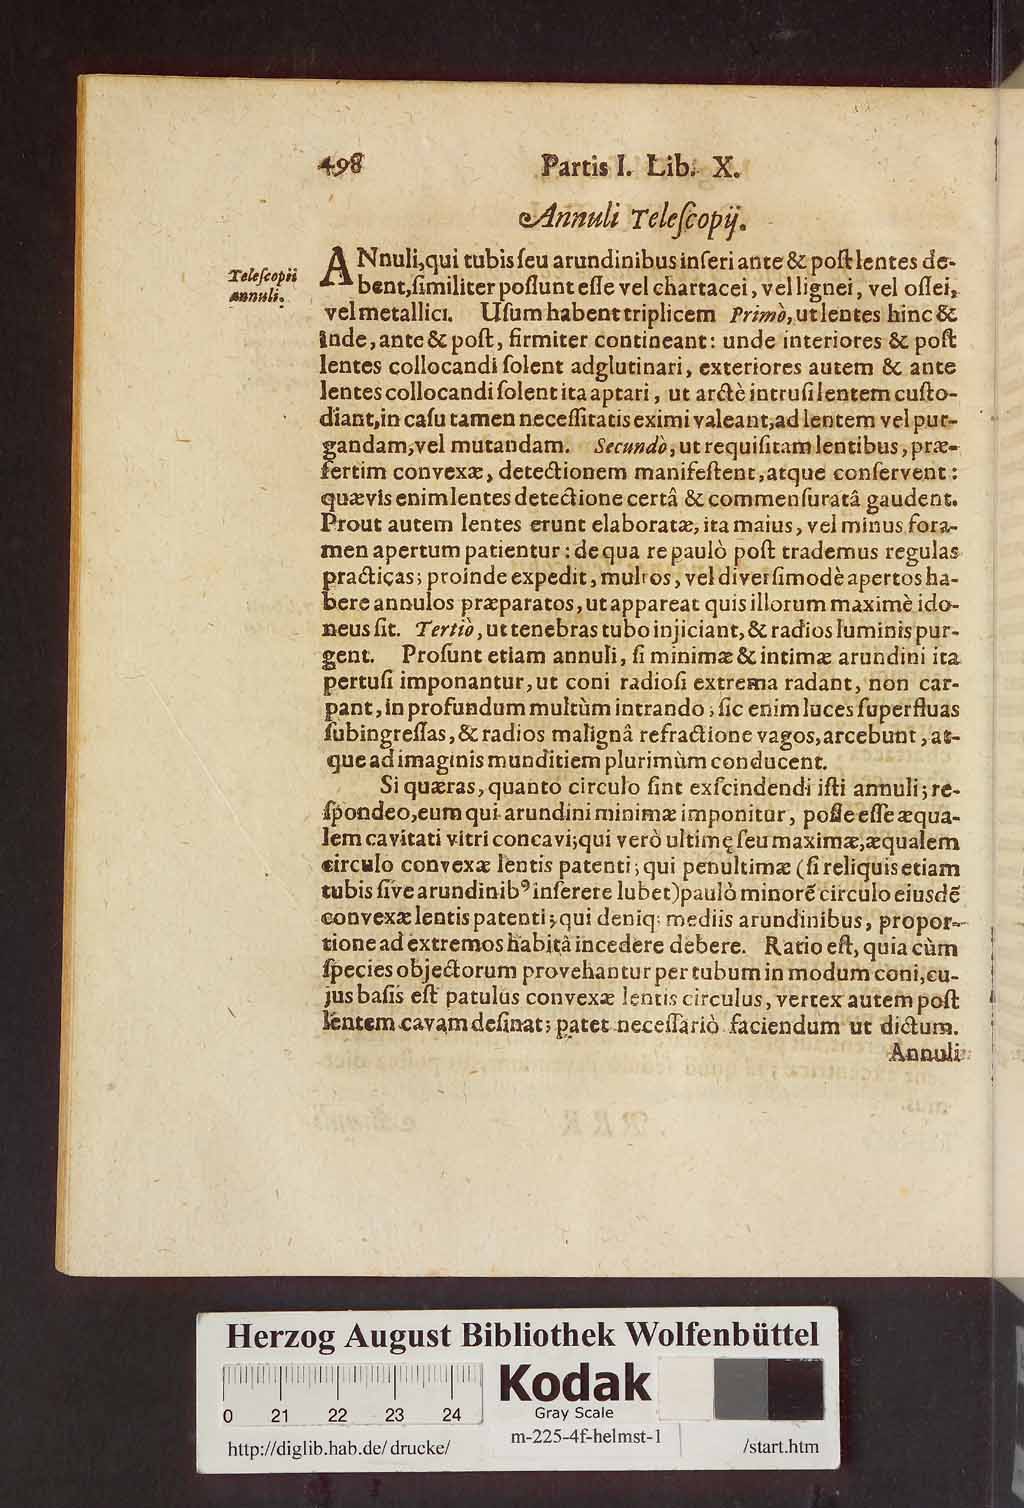 498 Partis I. Lib. X.
Annuli Teleſcopij.
Teleſcopii
annuli.
ANnuli, qui tubis ſeu arundinibus inſeri ante & poſt lentes de-
bent, ſimiliter poſſunt eſſe vel chartacei, vel lignei, vel oſſei,
vel metallici. Uſum habent triplicem Primò, ut lentes hinc &
inde, ante & poſt, firmiter contineant: unde interiores & poſt
lentes collocandi ſolent adglutinari, exteriores autem & ante
lentes collocandi ſolent ita aptari, ut arctè intruſi lentem cuſto-
diant, in caſu tamen neceſſitatis eximi valeant, ad lentem vel pur-
gandam, vel mutandam. Secundò, ut requiſitam lentibus, præ-
ſertim convexæ, detectionem manifeſtent, atque conſervent:
quævis enim lentes detectione certâ & commenſuratâ gaudent.
Prout autem lentes erunt elaboratæ, ita maius, vel minus fora-
men apertum patientur: de qua re paulò poſt trademus regulas
practicas; proinde expedit, multos, vel diverſimodè apertos ha-
bere annulos præparatos, ut appareat quis illorum maximè ido-
neus ſit. Tertiò, ut tenebras tubo injiciant, & radios luminis pur-
gent. Proſunt etiam annuli, ſi minimæ & intimæ arundini ita
pertuſi imponantur, ut coni radioſi extrema radant, non car-
pant, in profundum multùm intrando; ſic enim luces ſuperfluas
ſubingreſſas, & radios malignâ refractione vagos, arcebunt, at-
que ad imaginis munditiem plurimùm conducent.
Si quæras, quanto circulo ſint exſcindendi iſti annuli; re-
ſpondeo, eum qui arundini minimæ imponitur, poſſe eſſe æqua-
lem cavitati vitri concavi; qui verò ultimę ſeu maximæ, æqualem
circulo convexæ lentis patenti; qui penultimæ (ſi reliquis etiam
tubis ſive arundinibꝰ inſerere lubet) paulò minorẽ circulo eiusdẽ
convexæ lentis patenti; qui deniq; mediis arundinibus, propor-
tione ad extremos habitâ incedere debere. Ratio eſt, quia cùm
ſpecies objectorum provehantur per tubum in modum coni, cu-
jus baſis eſt patulus convexæ lentis circulus, vertex autem poſt
lentem cavam deſinat; patet neceſſariò faciendum ut dictum.
Annuli
Herzog August Bibliothek Wolfenbüttel
0 21 22 23 24
Kodak
Gray Scale
http://diglib.hab.de/drucke/ m-225-4f-helmst-1 /start.htm